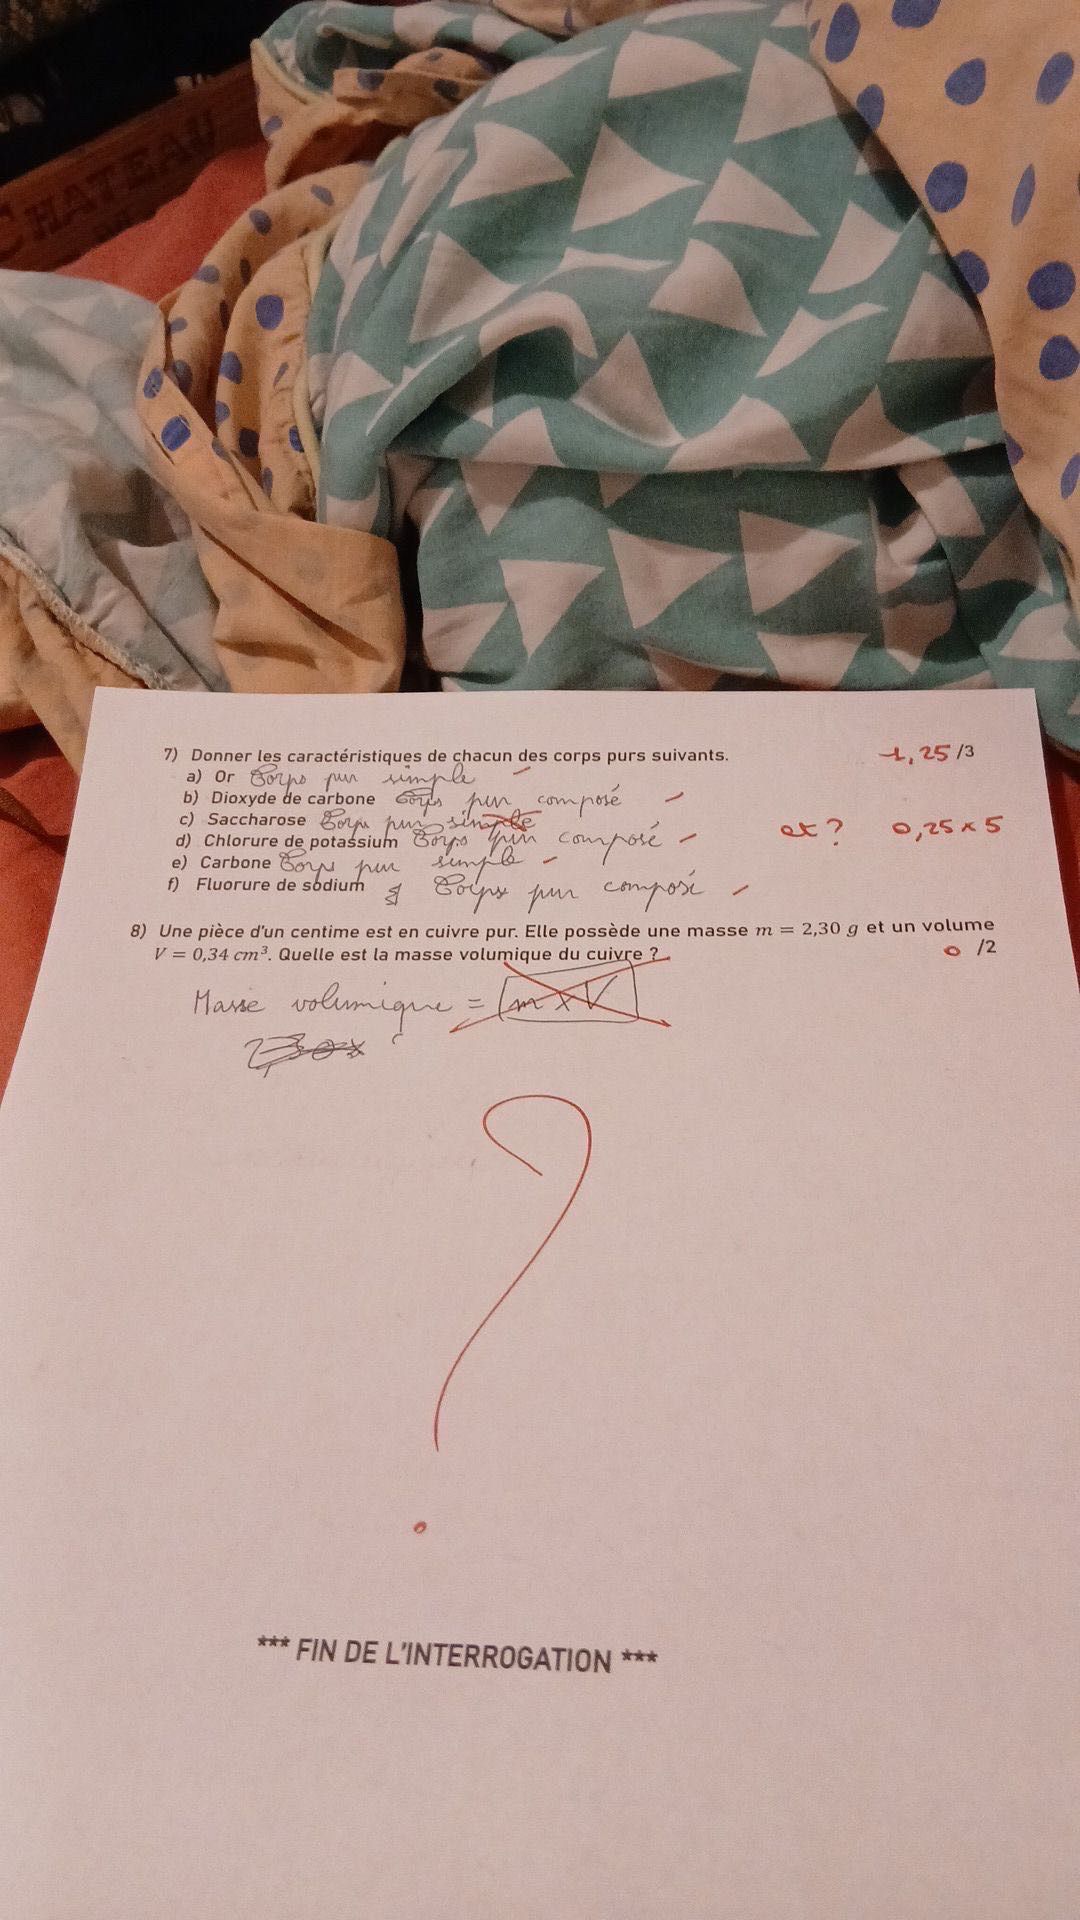 CHATEAU
7) Donner les caractéristiques de chacun des corps purs suivants. 1,25 /3
a) Or Corps pur simple
b) Dioxyde de carbone Corps pur composé
c) Saccharose Corps pur simple et ? 0,25 x 5
d) Chlorure de potassium Corps pur composé
e) Carbone Corps pur simple
f) Fluorure de sodium Corps pur composé
8) Une pièce d'un centime est en cuivre pur. Elle possède une masse m = 2,30 g et un volume
V = 0,34 cm³. Quelle est la masse volumique du cuivre ? 0 /2
Masse volumique = m x V
?
*** FIN DE L'INTERROGATION ***